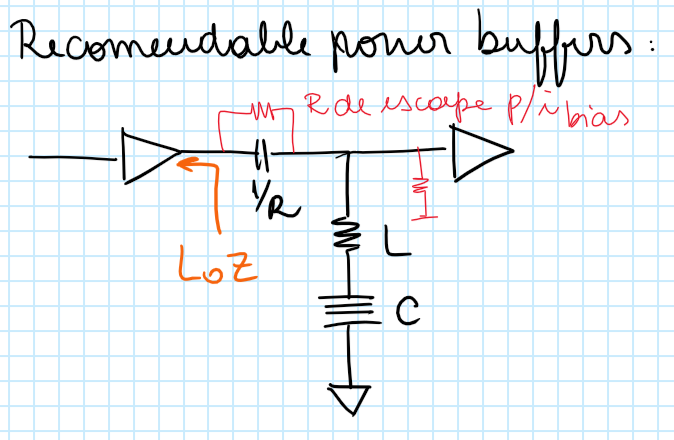 Recomendable poner buffers:
R de escape p/i bias
1/R
LoZ
L
C